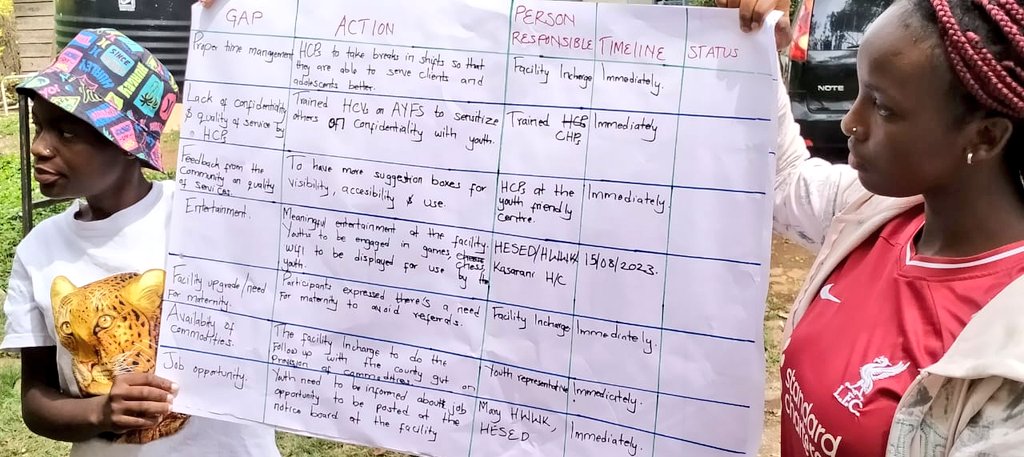 GAP
ACTION
PERSON
RESPONSIBLE
TIMELINE
STATUS
Proper time management
HCPs to take breaks in shifts so that
they are able to serve clients and
adolescents better.
Facility Incharge
Immediately.
Lack of confidentiality
& quality of service by
HCPs
Trained HCVs on AYFS to sensitize
others on Confidentiality with youth.
Trained HCPs
CHPs
Immediately
Feedback from the
Community on quality
of services.
To have more suggestion boxes for
visibility, accesibility & use.
HCPs at the
youth friendly
Centre.
Immediately
Entertainment.
Meaningful entertainment at the facility.
Youths to be engaged in games, chess,
wifi to be displayed for use by the
youth.
HESED/HWWK
Kasarani H/C
15/08/2023.
Facility upgrade/need
For maternity.
Participants expressed there's a need
For maternity to avoid referrals.
Facility Incharge
Immediately.
Availabity of
commodities.
The facility Incharge to do the
Follow up with the county gvt on
Provision of commodities
Youth representative
Immediately.
Job opportunity.
Youth need to be informed about job
opportunity to be posted at the
notice board at the facility
Mary HWWK,
HESED
Immediately.
NOTE
L.F.C.
standard